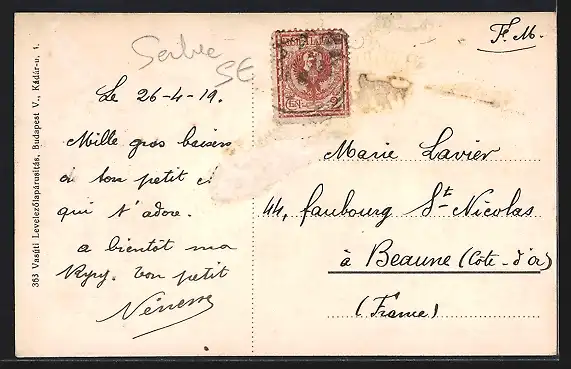 Serbie
SE
F. M.
POSTE ITALIANE
CEN. 2
Le 26-4-19.
Mille gros baisers
de ton petit
qui t'adore.
a bientôt ma
ton petit
Marie Lavier
44, faubourg St Nicolas
à Beaune (Côte-d'Or)
(France)
363 Vasúti Levelezőlapárusitás, Budapest V., Kádár-u. 1.